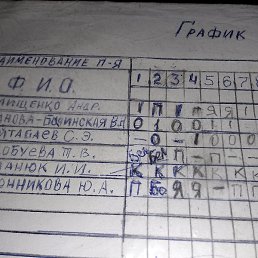 График
наименование п-я
Ф. И. О. 1 2 3 4 5 6 7 8
ищенко Андр. 1 П 1 - Я Я 1
нова-Бофинская В.А 0 1 0 0 1 1
йтабаев С. Э. - 0 - 1 0 0 0
обуева П. В. Бел П - П -
анюк И. И. К К К К К К К
онникова Ю. А. П Бо Я Я - П